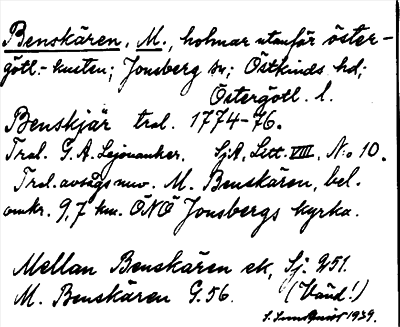 Benskären, M., holmar utanför öster-
götl.- kusten; Jonsberg sn; Östkinds hd;
Östergötl. l.
Benskjär tral. 1774-76.
Tral. G. A. Lejonanker. SjA, Litt. VIII, No 10.
Tral. avsågs nuv. M. Benskären, bel.
omkr. 9,7 km. ÖNÖ Jonsbergs kyrka.
Mellan Benskären ek, Sj. 951.
M. Benskären G. 56. (Vänd!)
1939.